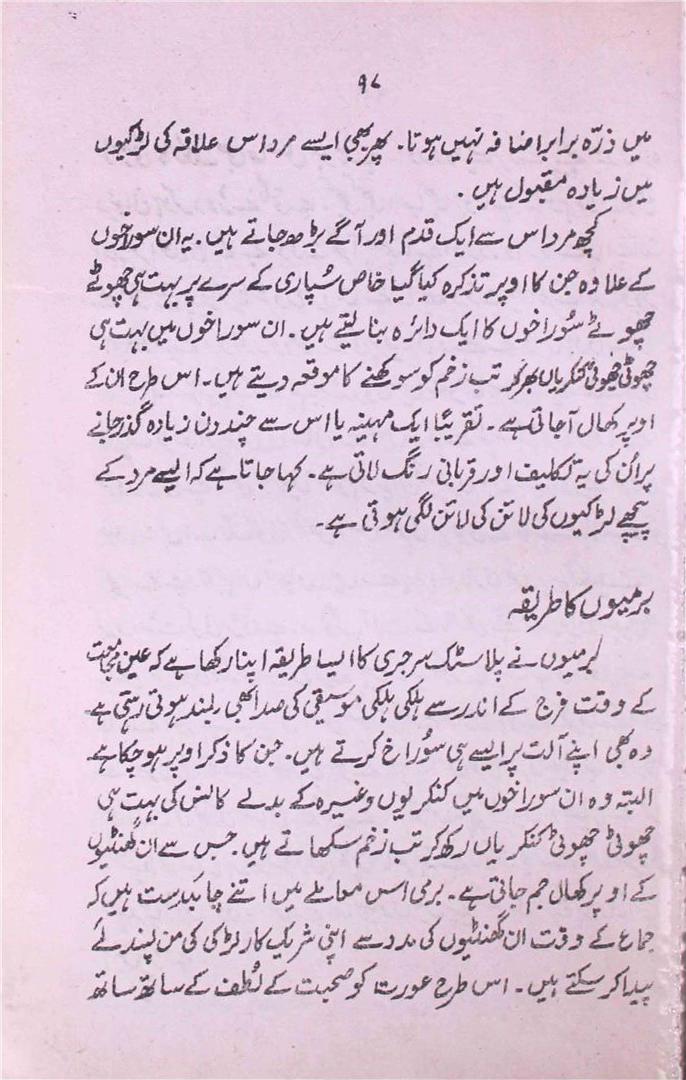 ۹۷
میں ذرّہ برابر اضافہ نہیں ہوتا۔ پھر بھی ایسے مرد اس علاقہ کی لڑکیوں
میں زیادہ مقبول ہیں۔
کچھ مرد اس سے ایک قدم اور آگے بڑھ جاتے ہیں۔ یہ ان سوراخوں
کے علاوہ جن کا اوپر تذکرہ کیا گیا خاص سُپاری کے سرے پر بہت ہی چھوٹے
چھوٹے سُوراخوں کا ایک دائرہ بنا لیتے ہیں۔ ان سوراخوں میں بہت ہی
چھوٹی چھوٹی کنکریاں بھر کر تب زخم کو سوکھنے کا موقعہ دیتے ہیں۔ اس طرح ان کے
اوپر کھال آ جاتی ہے۔ تقریبًا ایک مہینہ یا اس سے چند دن زیادہ گذر جانے
پر اُن کی یہ تکلیف اور قربانی رنگ لاتی ہے۔ کہا جاتا ہے کہ ایسے مرد کے
پیچھے لڑکیوں کی لائن کی لائن لگی ہوتی ہے۔
برمیوں کا طریقہ
برمیوں نے پلاسٹک سرجری کا ایسا طریقہ اپنا رکھا ہے کہ عین مجامعت
کے وقت فرج کے اندر سے ہلکی ہلکی موسیقی کی صدا بھی بلند ہوتی رہتی ہے
وہ بھی اپنے آلت پر ایسے ہی سُوراخ کرتے ہیں۔ جن کا ذکر اوپر ہو چکا ہے۔
البتہ وہ ان سوراخوں میں کنکریوں وغیرہ کے بدلے کانس کی بہت ہی
چھوٹی چھوٹی کنکریاں رکھ کر تب زخم سکھاتے ہیں۔ جس سے ان گھنٹیوں
کے اوپر کھال جم جاتی ہے۔ برمی اس معاملے میں اتنے چابکدست ہیں کہ
جماع کے وقت ان گھنٹیوں کی مدد سے اپنی شریک کار لڑکی کی من پسند لَے
پیدا کر سکتے ہیں۔ اس طرح عورت کو صحبت کے لُطف کے ساتھ ساتھ